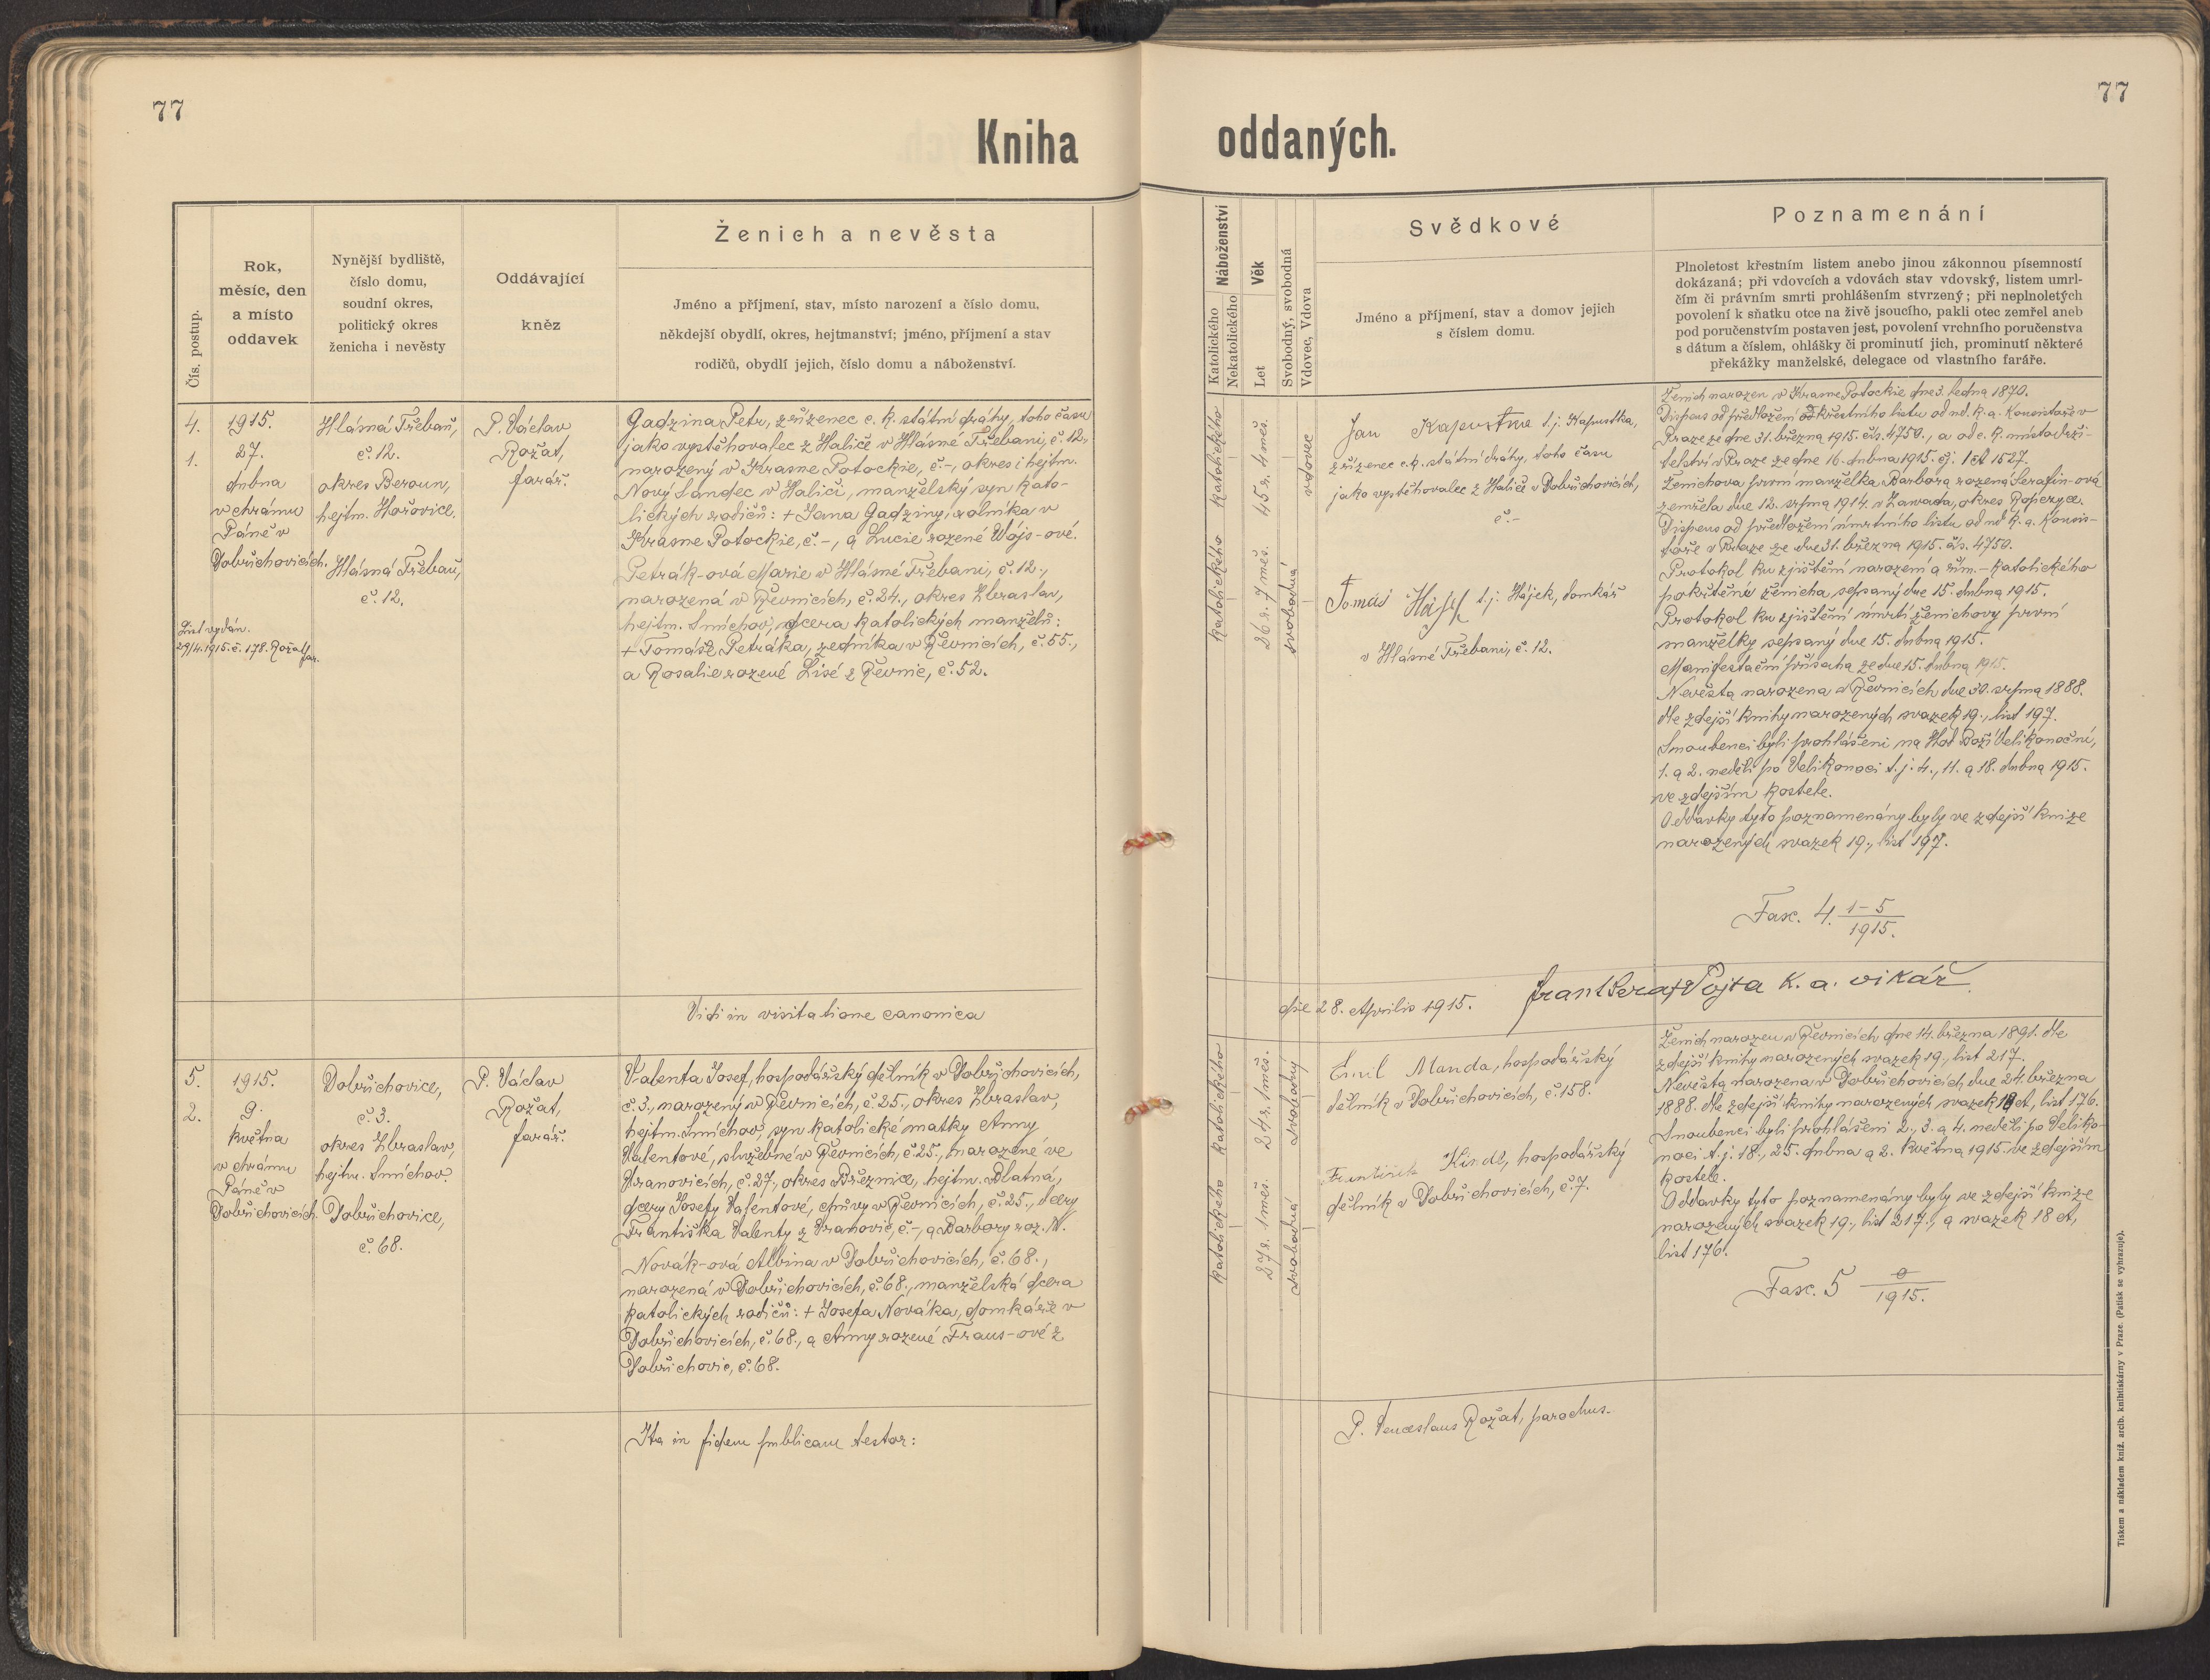 77
77
Kniha
oddaných.
Čís. postup.
Rok,
měsíc, den
a místo
oddavek
Nynější bydliště,
číslo domu,
soudní okres,
politický okres
ženicha i nevěsty
Oddávající
kněz
Ženich a nevěsta
Jméno a příjmení, stav, místo narození a číslo domu,
někdejší obydlí, okres, hejtmanství; jméno, příjmení a stav
rodičů, obydlí jejich, číslo domu a náboženství.
Náboženství
Katolického
Nekatolického
Věk
Let
Svobodný, svobodná
Vdovec, Vdova
Svědkové
Jméno a příjmení, stav a domov jejich
s číslem domu.
Poznamenání
Plnoletost křestním listem anebo jinou zákonnou písemností
dokázaná; při vdovcích a vdovách stav vdovský, listem umrl-
čím či právním smrti prohlášením stvrzený; při neplnoletých
povolení k sňatku otce na živě jsoucího, pakli otec zemřel aneb
pod poručenstvím postaven jest, povolení vrchního poručenstva
s dátum a číslem, ohlášky či prominutí jich, prominutí některé
překážky manželské, delegace od vlastního faráře.
4.
1.
1915.
27.
dubna
v chrámu
Páně v
Dobřichovicích.
List vydán.
29/4.1915. č. 178. Rožat far.
Hlásná Třebaň,
č. 12.
okres Beroun,
hejtm. Hořovice.
Hlásná Třebaň,
č. 12.
P. Václav
Rožat,
farář.
Gadzina Petr, zřízenec c. k. státní dráhy, toho času
jako vystěhovalec z Haliče v Hlásné Třebani, č. 12.,
narozený v Krasne Potockie, č. -, okres i hejtm.
Nový Sandec v Haliči, manželský syn kato-
lických rodičů: + Jana Gadziny, rolníka v
Krasne Potockie, č. -, a Lucie rozené Wójs-ové.
Petrák-ová Marie v Hlásné Třebani, č. 12.,
narozená v Řevnicích, č. 24., okres Zbraslav,
hejtm. Smíchov, dcera katolických manželů:
+ Tomáše Petráka, zedníka v Řevnicích, č. 55.,
a Rosalie rozené Lisé z Řevnic, č. 52.
katolického
katolického
45 r. 4 měs.
26 r. 7 měs.
vdovec
svobodná
Jan Kapustka t. j. Kapustka,
zřízenec c. k. státní dráhy, toho času
jako vystěhovalec z Haliče v Dobřichovicích,
č. -
Tomáš Hájek t. j. Hájek, domkář
v Hlásné Třebani, č. 12.
Ženich narozen v Krasne Potockie dne 3. ledna 1870.
Dispens od předložení křestního listu od nd. k. a. Konsistoře v
Praze ze dne 31. března 1915. čís. 4750., a od c. k. místodrži-
telství v Praze ze dne 16. dubna 1915. čj. 1 A 1527.
Ženichova první manželka Barbora rozená Serafin-ová
zemřela dne 12. srpna 1914. v Zawada, okres Ropczyce.
Dispens od předložení úmrtního listu od nd. k. a. Konsis-
toře v Praze ze dne 31. března 1915. čís. 4750.
Protokol ku zjištění narození a řím.-katolického
pokřtění ženicha sepsaný dne 15. dubna 1915.
Protokol ku zjištění úmrtí ženichovy první
manželky sepsaný dne 15. dubna 1915.
Manifestační přísaha ze dne 15. dubna 1915.
Nevěsta narozena v Řevnicích dne 30. srpna 1888.
dle zdejší knihy narozených svazek 19., list 197.
Snoubenci byli prohlášeni na Hod Boží Velikonoční,
1. a 2. neděli po Velikonoci t. j. 4., 11. a 18. dubna 1915.
ve zdejším kostele.
Oddavky tyto poznamenány byly ve zdejší knize
narozených svazek 19., list 197.
Fasc. 4. 1-5
1915.
Vidi in visitatione canonica
die 28. Aprilis 1915. Frant Seraf Vojta k. a. vikář
5.
2.
1915.
9.
května
v chrámu
Páně v
Dobřichovicích.
Dobřichovice,
č. 3.
okres Zbraslav,
hejtm. Smíchov.
Dobřichovice,
č. 68.
P. Václav
Rožat,
farář.
Valenta Josef, hospodářský dělník v Dobřichovicích,
č. 3., narozený v Řevnicích, č. 25., okres Zbraslav,
hejtm. Smíchov, syn katolické matky Anny
Valentové, služebné v Řevnicích, č. 25., narozené ve
Vranovicích, č. 27., okres Březnice, hejtm. Blatná,
dcery Josefy Valentové, chůvy v Řevnicích, č. 25., dcery
Františka Valenty z Vranovic, č. -, a Barbory roz. N.
Novák-ová Albina v Dobřichovicích, č. 68.,
narozená v Dobřichovicích, č. 68., manželská dcera
katolických rodičů: + Josefa Nováka, domkáře v
Dobřichovicích, č. 68., a Anny rozené Fraus-ové z
Dobřichovic, č. 68.
katolického
katolického
24 r. 1 měs.
27 r. 1 měs.
svobodný
svobodná
Emil Manda, hospodářský
dělník v Dobřichovicích, č. 158.
František Kindl, hospodářský
dělník v Dobřichovicích, č. 7.
Ženich narozen v Řevnicích dne 14. března 1891. dle
zdejší knihy narozených svazek 19., list 217.
Nevěsta narozena v Dobřichovicích dne 24. března
1888. dle zdejší knihy narozených svazek 18 A, list 176.
Snoubenci byli prohlášeni 2., 3. a 4. neděli po Veliko-
noci t. j. 18., 25. dubna a 2. května 1915. ve zdejším
kostele.
Oddavky tyto poznamenány byly ve zdejší knize
narozených svazek 19., list 217., a svazek 18 A,
list 176.
Fasc. 5 0
1915.
Ita in fidem publicam testor:
P. Venceslaus Rožat, parochus.
Tiskem a nákladem kníž. arcib. knihtiskárny v Praze. (Patisk se vyhrazuje).